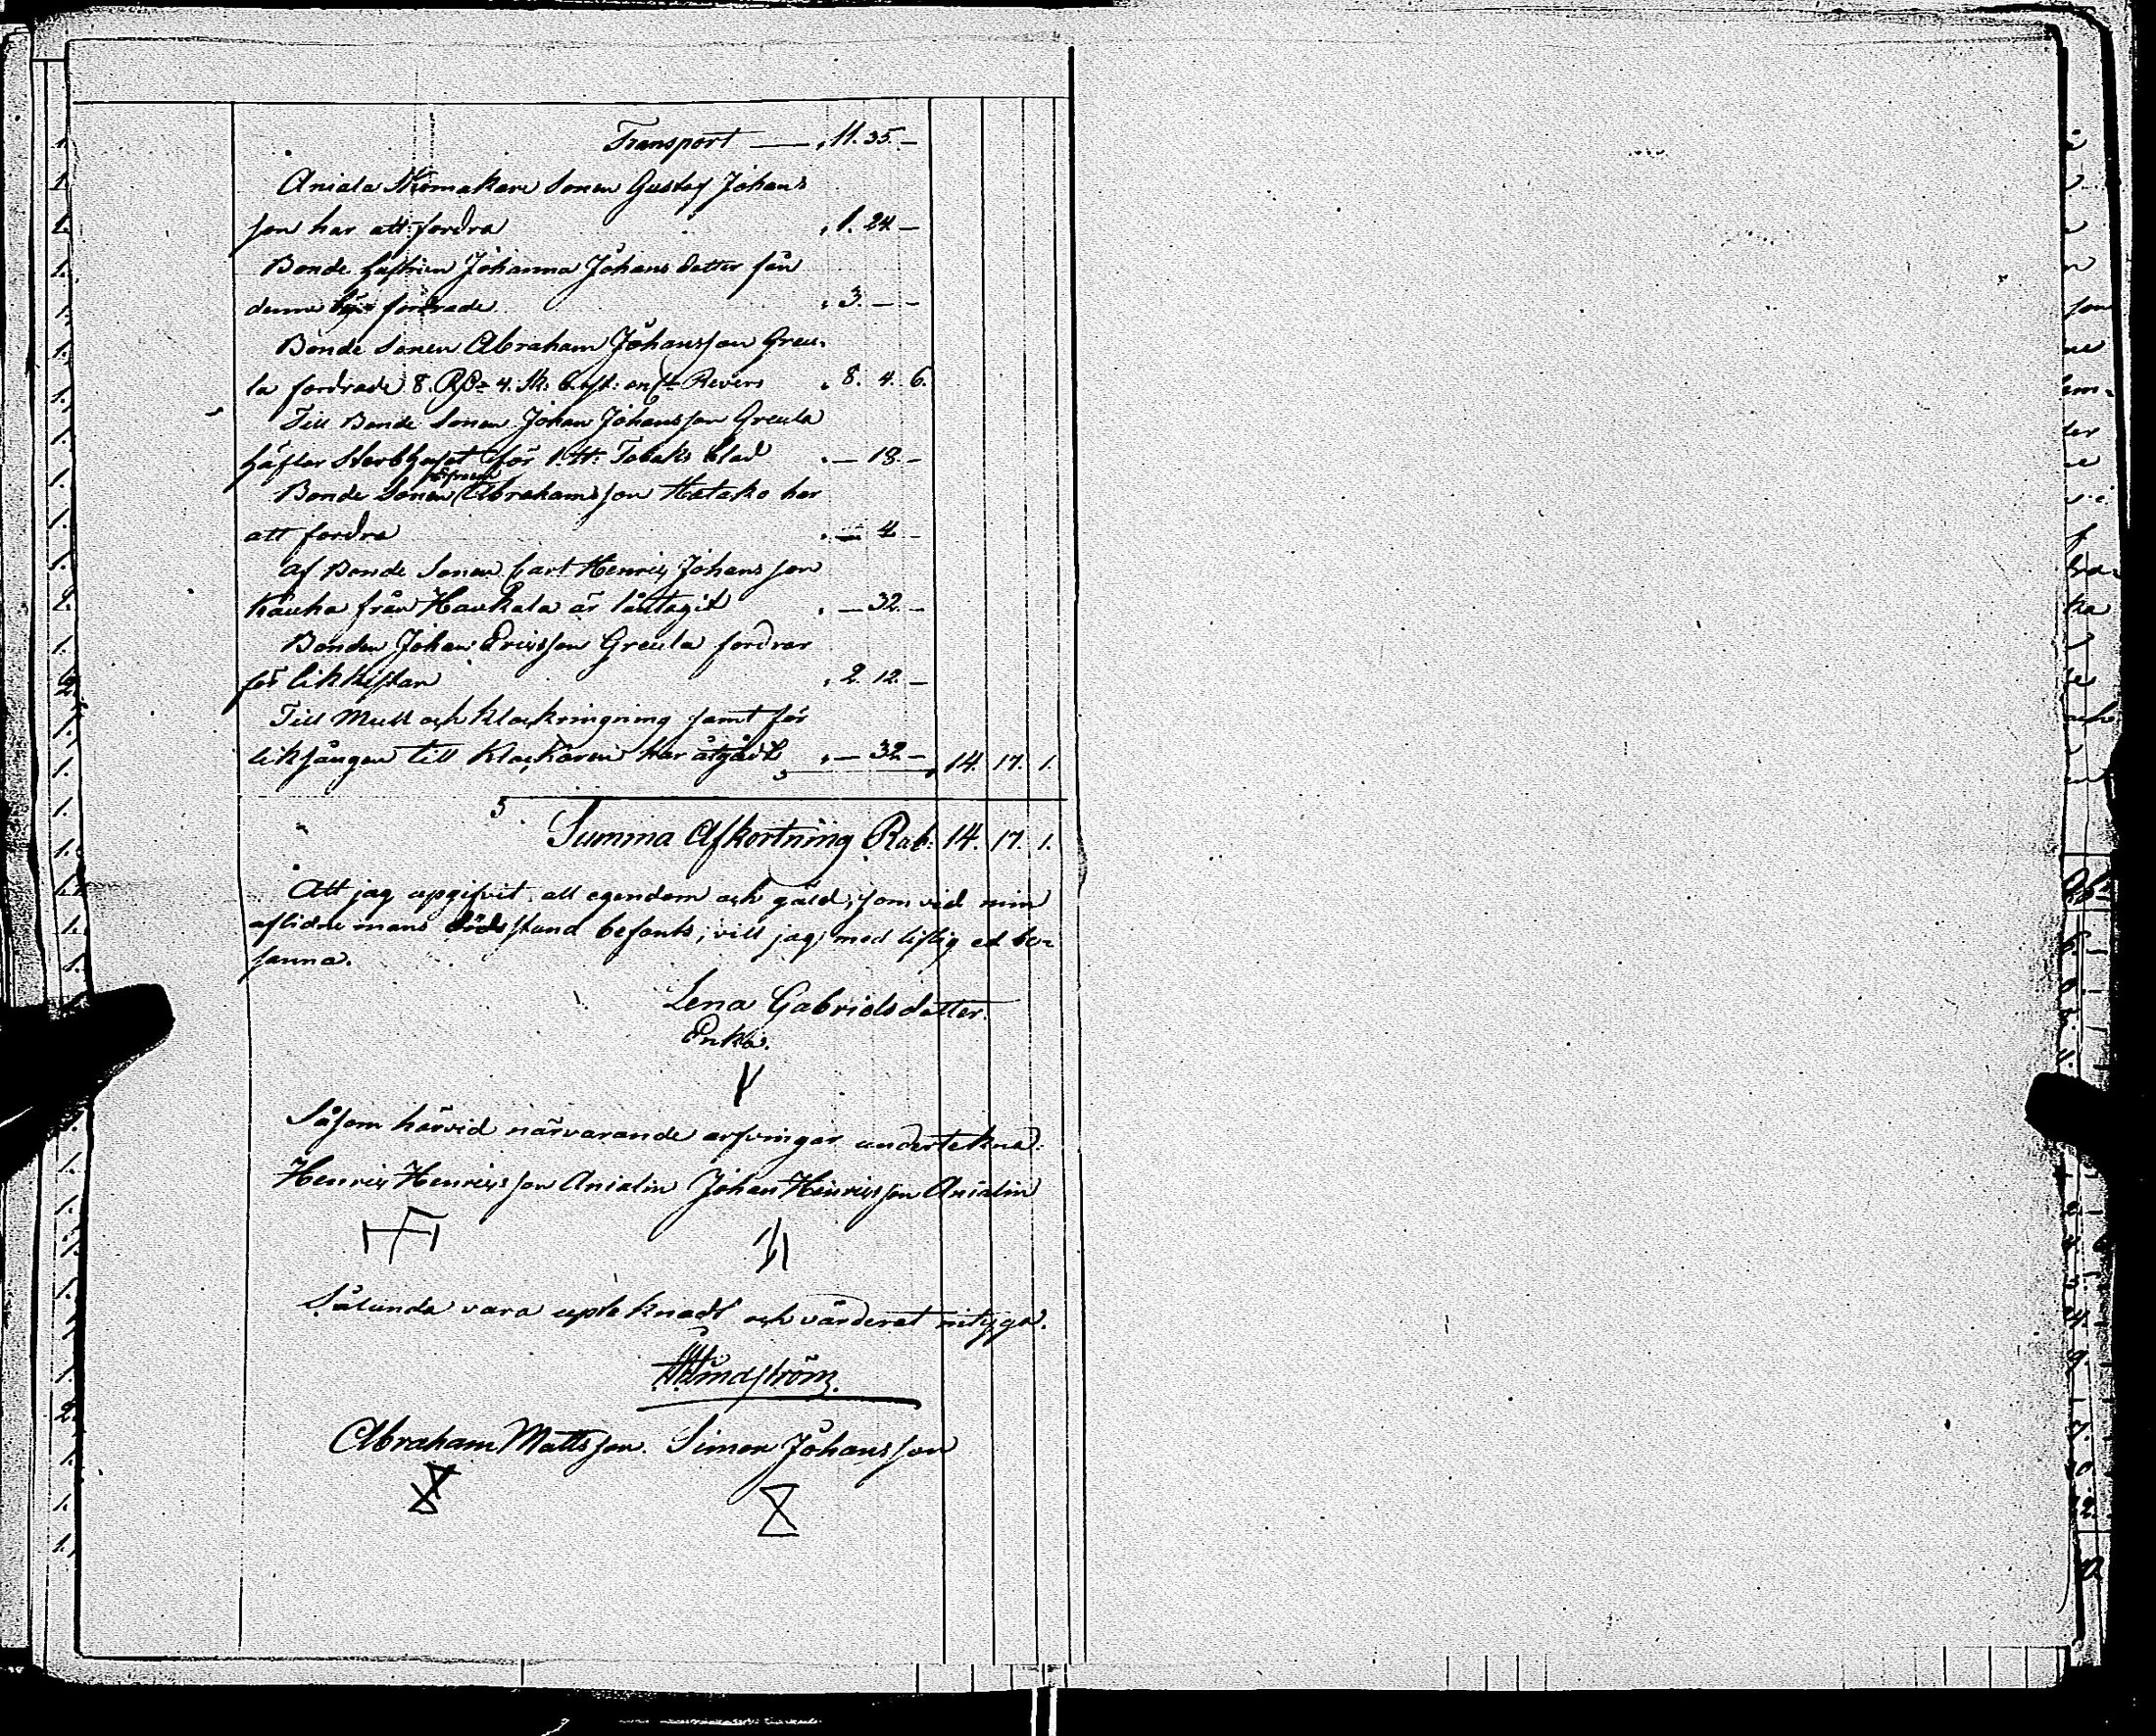 Transport — „ 11. 35. —
Aniala Skomakare Sonen Gustaf Johans
son har att fordra „ 1. 24 —
Bonde hustrun Johanna Johansdotter från
denne by fordrade „ 3. — —
Bonde Sonen Abraham Johansson Greu-
la fordrade 8. R 4. sk. 6. Revers „ 8. 4. 6.
Till Bonde Sonen Johan Johansson Greula
häftar Sterbhuset för 1. ℔. Tobaks blad „ — 18. —
Bonde Sonen Abrahamsson Hatako har
att fordra „ — 4 —
Af Bonde Sonen Carl Henric Johansson
Kauha från Haukala är låntagit „ — 32. —
Bonden Johan Ericsson Greula fordrar
för likkistan „ 2. 12. —
Till Mull och klockringning samt för
liksången till Klockaren har åtgådt „ — 32 — 14. 17. 1.
Summa Afkortning Rub. 14. 17. 1.
Att jag uppgifvit all egendom och gäld, som vid min
aflidne mans dödsstund befants, vill jag med liflig ed be-
sanna.
Lena Gabrielsdotter.
Enka.
Såsom härvid närvarande arfvingar underteckna:
Henric Henricsson Anialin Johan Henricsson Anialin
Sålunda vara upteknadt och värderat intyga.
Lindström.
Abraham Mattsson. Simon Johansson